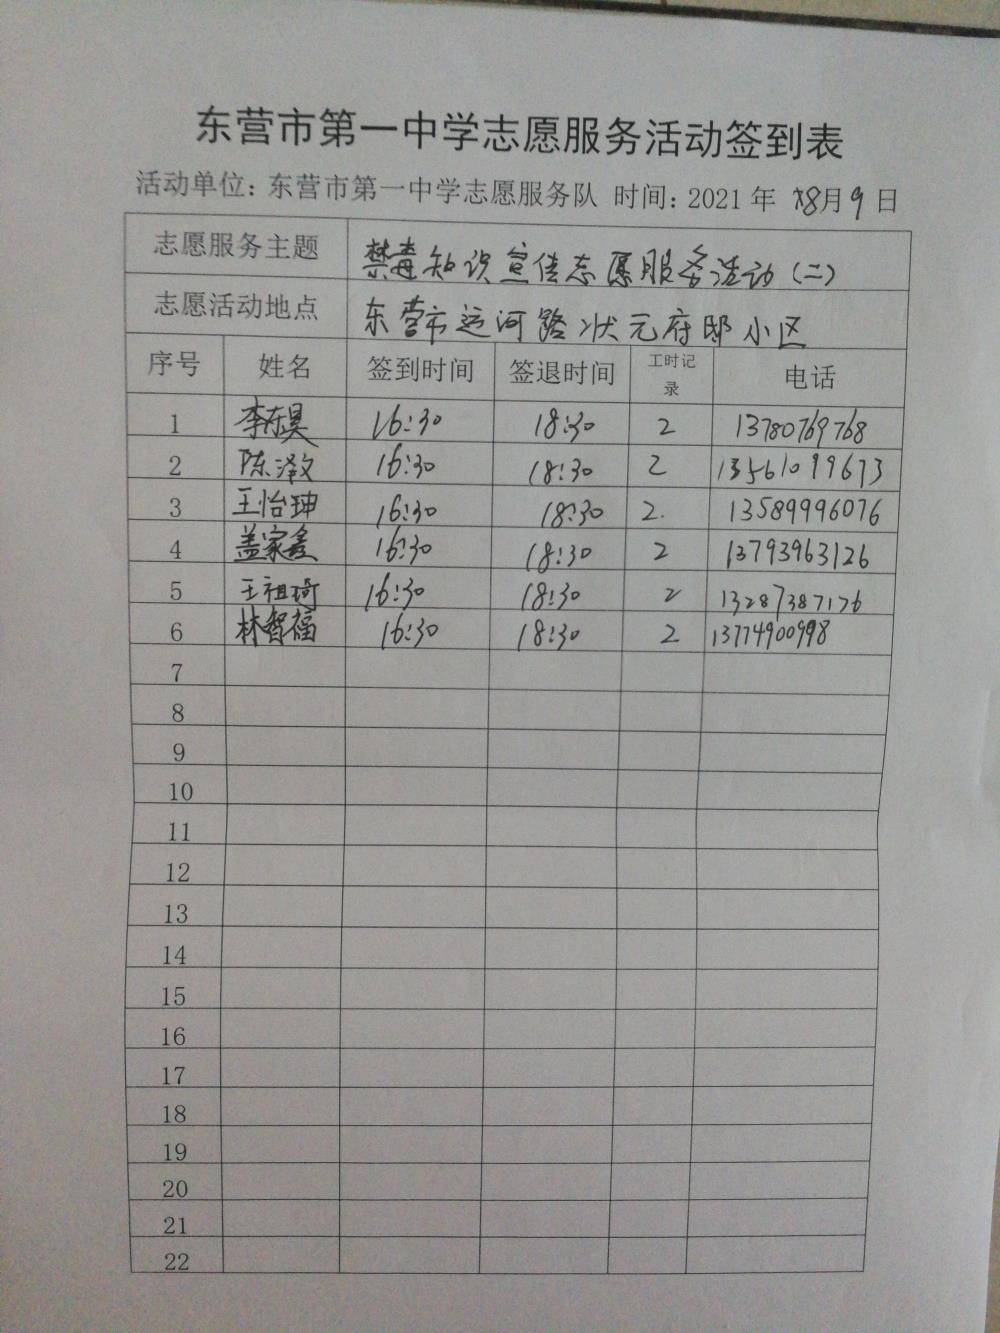 东营市第一中学志愿服务活动签到表
活动单位：东营市第一中学志愿服务队 时间：2021 年 8月9日
志愿服务主题 禁毒知识宣传志愿服务活动（二）
志愿活动地点 东营市运河路状元府邸小区
序号 姓名 签到时间 签退时间 工时记录 电话
1 李东昊 16:30 18:30 2 13780769768
2 陈泽文 16:30 18:30 2 13561099673
3 王怡珅 16:30 18:30 2. 13589996076
4 盖家鑫 16:30 18:30 2 13793963126
5 王祖琦 16:30 18:30 2 13287387176
6 林智福 16:30 18:30 2 13774900998
7
8
9
10
11
12
13
14
15
16
17
18
19
20
21
22